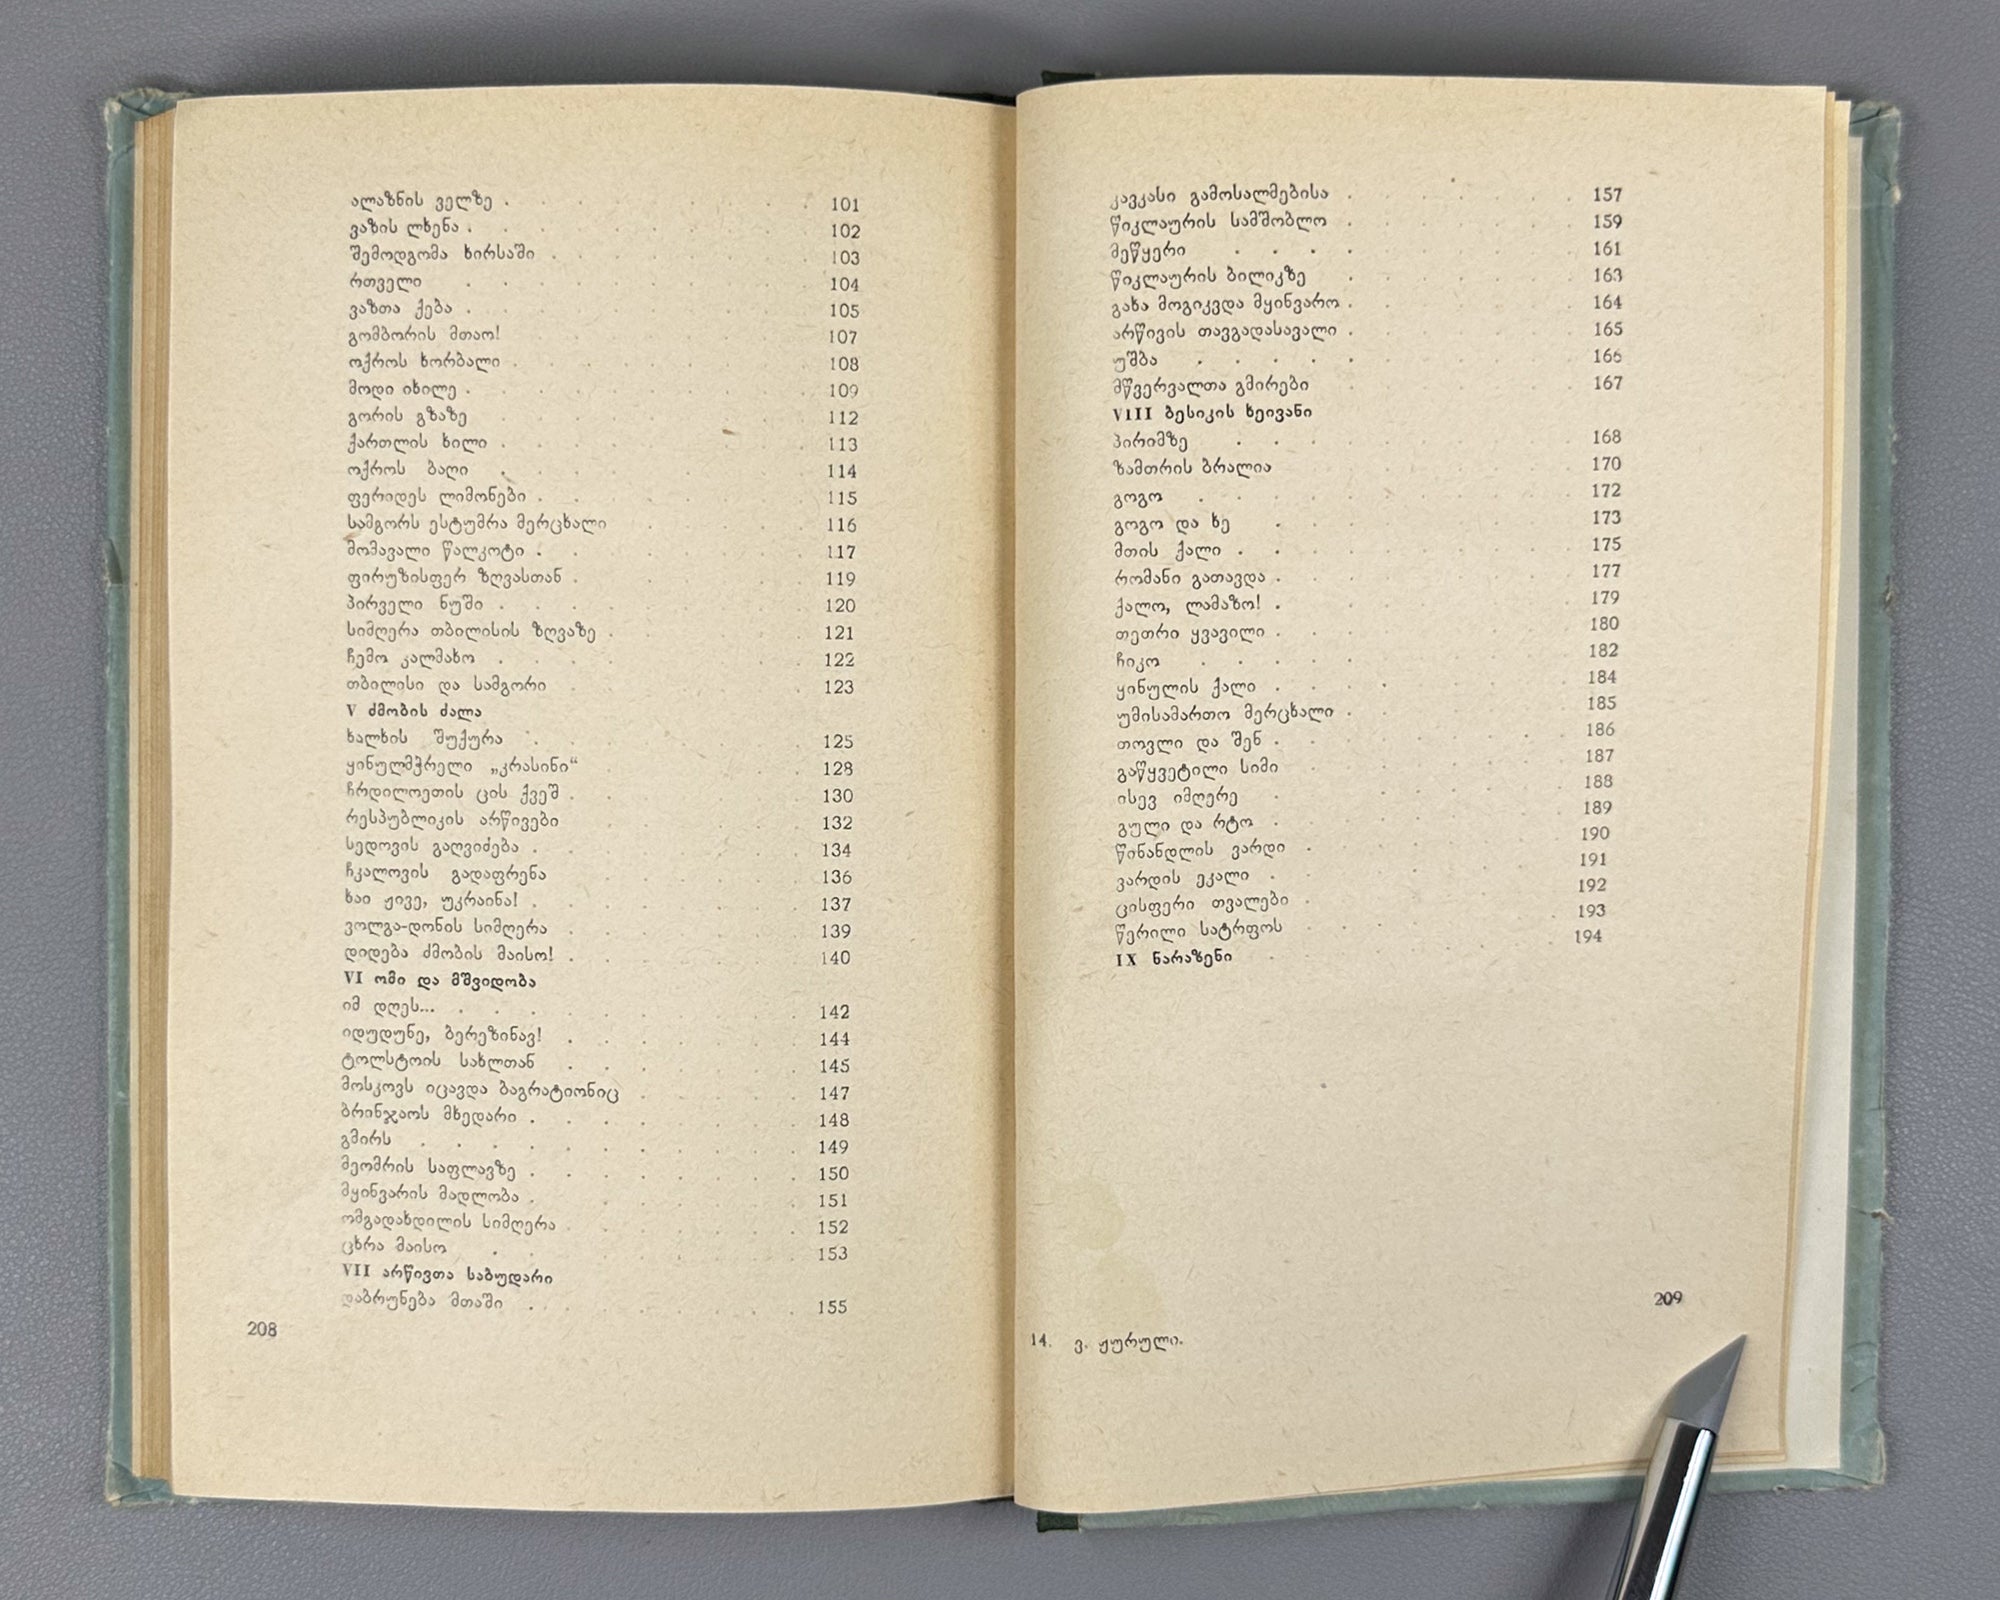 ალაზნის ველზე . . . . . . . . 101
ვაზის ლხენა . . . . . . . . 102
შემოდგომა ხირსაში . . . . . . . 103
რთველი . . . . . . . . 104
ვაზთა ქება . . . . . . . . 105
გომბორის მთაო! . . . . . . . 107
ოქროს ხორბალი . . . . . . . 108
მოდი იხილე . . . . . . . . 109
გორის გზაზე . . . . . . . 112
ქართლის ხილი . . . . . . . 113
ოქროს ბაღი . . . . . . . 114
ფერიდეს ლიმონები . . . . . . . 115
სამგორს ესტუმრა მერცხალი . . . . . 116
მომავალი წალკოტი . . . . . . . 117
ფირუზისფერ ზღვასთან . . . . . . 119
პირველი ნუში . . . . . . . . 120
სიმღერა თბილისის ზღვაზე . . . . . . 121
ჩემო კალმახო . . . . . . . 122
თბილისი და სამგორი . . . . . . 123
V ძმობის ძალა
ხალხის შუქურა . . . . . . . 125
ყინულმჭრელი „კრასინი“ . . . . . . 128
ჩრდილოეთის ცის ქვეშ . . . . . . 130
რესპუბლიკის არწივები . . . . . 132
სედოვის გაღვიძება . . . . . . . 134
ჩკალოვის გადაფრენა . . . . . . 136
ხაი ჟივე, უკრაინა! . . . . . . . 137
ვოლგა-დონის სიმღერა . . . . . . 139
დიდება ძმობის მაისო! . . . . . . 140
VI ომი და მშვიდობა
იმ დღეს... . . . . . . . . 142
იდუდუნე, ბერეზინავ! . . . . . . 144
ტოლსტოის სახლთან . . . . . . 145
მოსკოვს იცავდა ბაგრატიონიც . . . . . 147
ბრინჯაოს მხედარი . . . . . . . 148
გმირს . . . . . . . . . 149
მეომრის საფლავზე . . . . . . . 150
მყინვარის მადლობა . . . . . . . 151
ომგადახდილის სიმღერა . . . . . . 152
ცხრა მაისო . . . . . . . 153
VII არწივთა საბუდარი
დაბრუნება მთაში . . . . . . . 155
208
კავკასი გამოსალმებისა . . . . . . 157
წიკლაურის სამშობლო . . . . . . 159
მეწყერი . . . . . . . . 161
წიკლაურის ბილიკზე . . . . . . 163
გახა მოგიკვდა მყინვარო . . . . . . 164
არწივის თავგადასავალი . . . . . . 165
უშბა . . . . . . . . . 166
მწვერვალთა გმირები . . . . . . 167
VIII ბესიკის ხეივანი
პირიმზე . . . . . . . . 168
ზამთრის ბრალია . . . . . . 170
გოგო . . . . . . . . . 172
გოგო და ხე . . . . . . . 173
მთის ქალი . . . . . . . . 175
რომანი გათავდა . . . . . . . 177
ქალო, ლამაზო! . . . . . . . 179
თეთრი ყვავილი . . . . . . . 180
ჩიკო . . . . . . . . 182
ყინულის ქალი . . . . . . . 184
უმისამართო მერცხალი . . . . . . 185
თოვლი და შენ . . . . . . . 186
გაწყვეტილი სიმი . . . . . . 187
ისევ იმღერე . . . . . . 188
გული და რტო . . . . . . . 189
წინანდლის ვარდი . . . . . . 190
ვარდის ეკალი . . . . . . . 191
ცისფერი თვალები . . . . . . 192
წერილი სატრფოს . . . . . . 193
IX ნარაზენი . . . . . . 194
209
14. ვ. ჟურული.